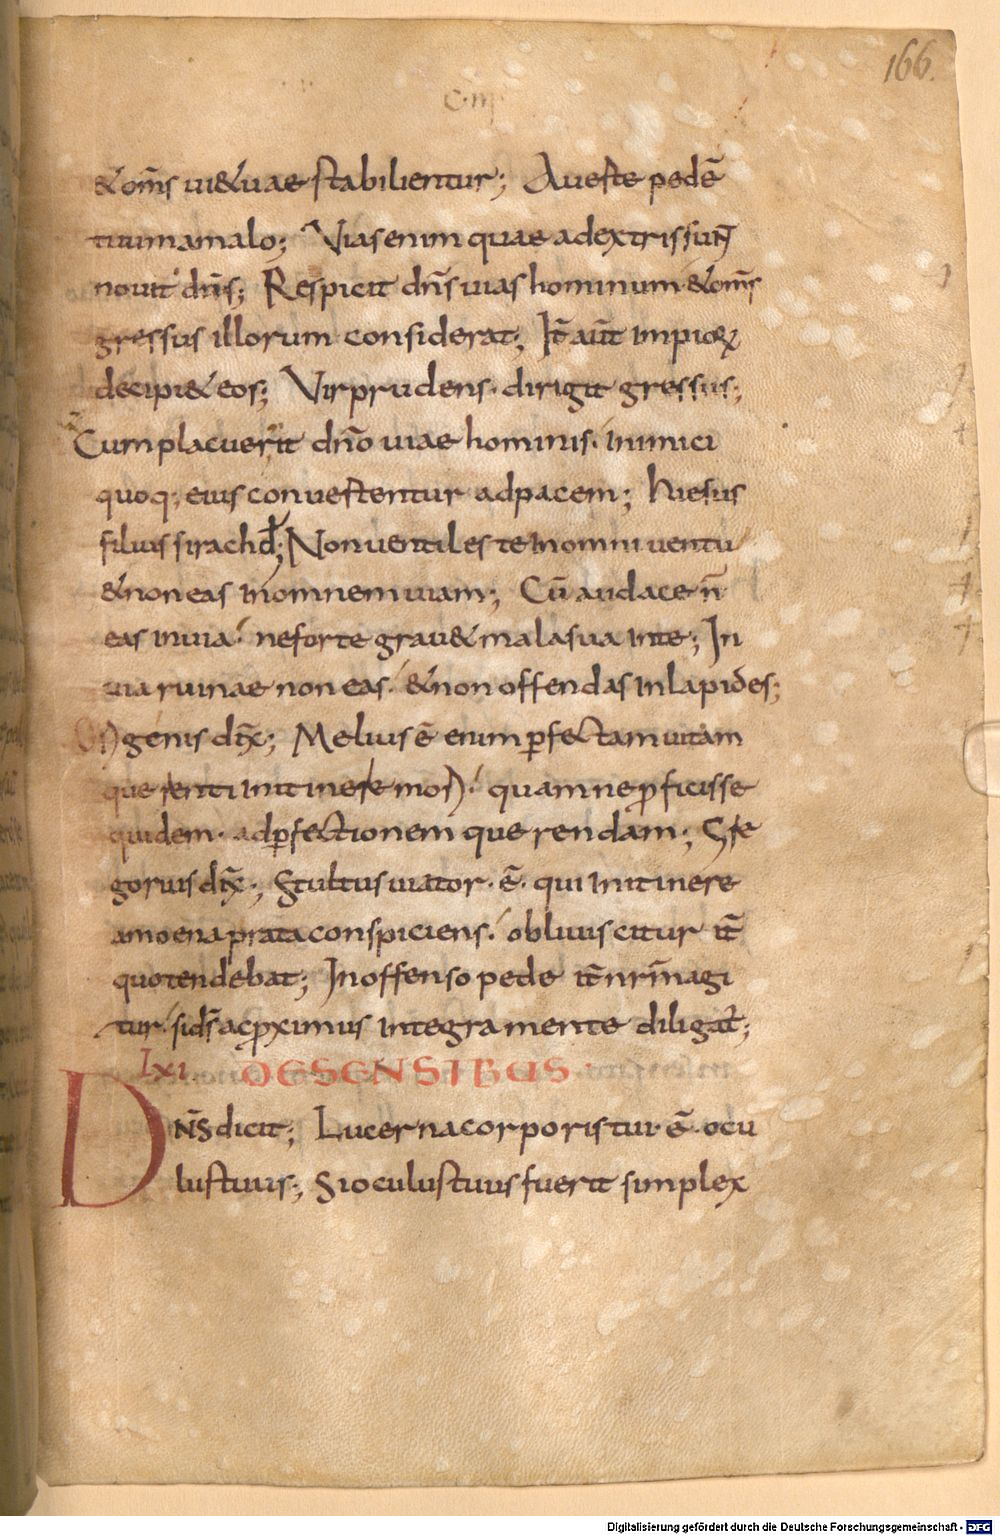 166.
c·m
&om̅s ui&uae stabilientur; Aueste pedē
tuum amalo; Vias enim quae adextris sunt
nouit dn̅s; Respicit dn̅s uias hominum &om̅s
gressus illorum considerat; It̅ aut̅ impioꝝ
decipi& eos; Vir prudens· dirigit gressus;
Cum placuerit dn̅o uiae hominis· inimici
quoq; eius conuestentur adpacem; hiesus
filius sirach d̅; Non uentiles te inomni uentu
&non eas inomnem uiam; Cū audace n̅
eas inuia· ne forte grau& mala sua inte; In
uia ruinae non eas· &non offendas inlapides;
genis dix̅; Melius ē enim ꝑfectam uitam
querenti initinere mori· quam ne ꝓficisse
quidem· adꝑfectionem querendam; Gre
gorius dix̅; Stultus uiator· ē· qui initinere
amoena prata conspiciens· obliuiscitur it̅
quo tendebat; Inoffenso pede it̅ nr̅m agi
tur· si dm̅ ac ꝓximus integra mente diligat̅;
lxi. DE SENSIBUS·
DN̅S dicit; Lucerna corporis tui· ē· ocu
lus tuus; Si oculus tuus fuerit simplex
Digitalisierung gefördert durch die Deutsche Forschungsgemeinschaft - DFG